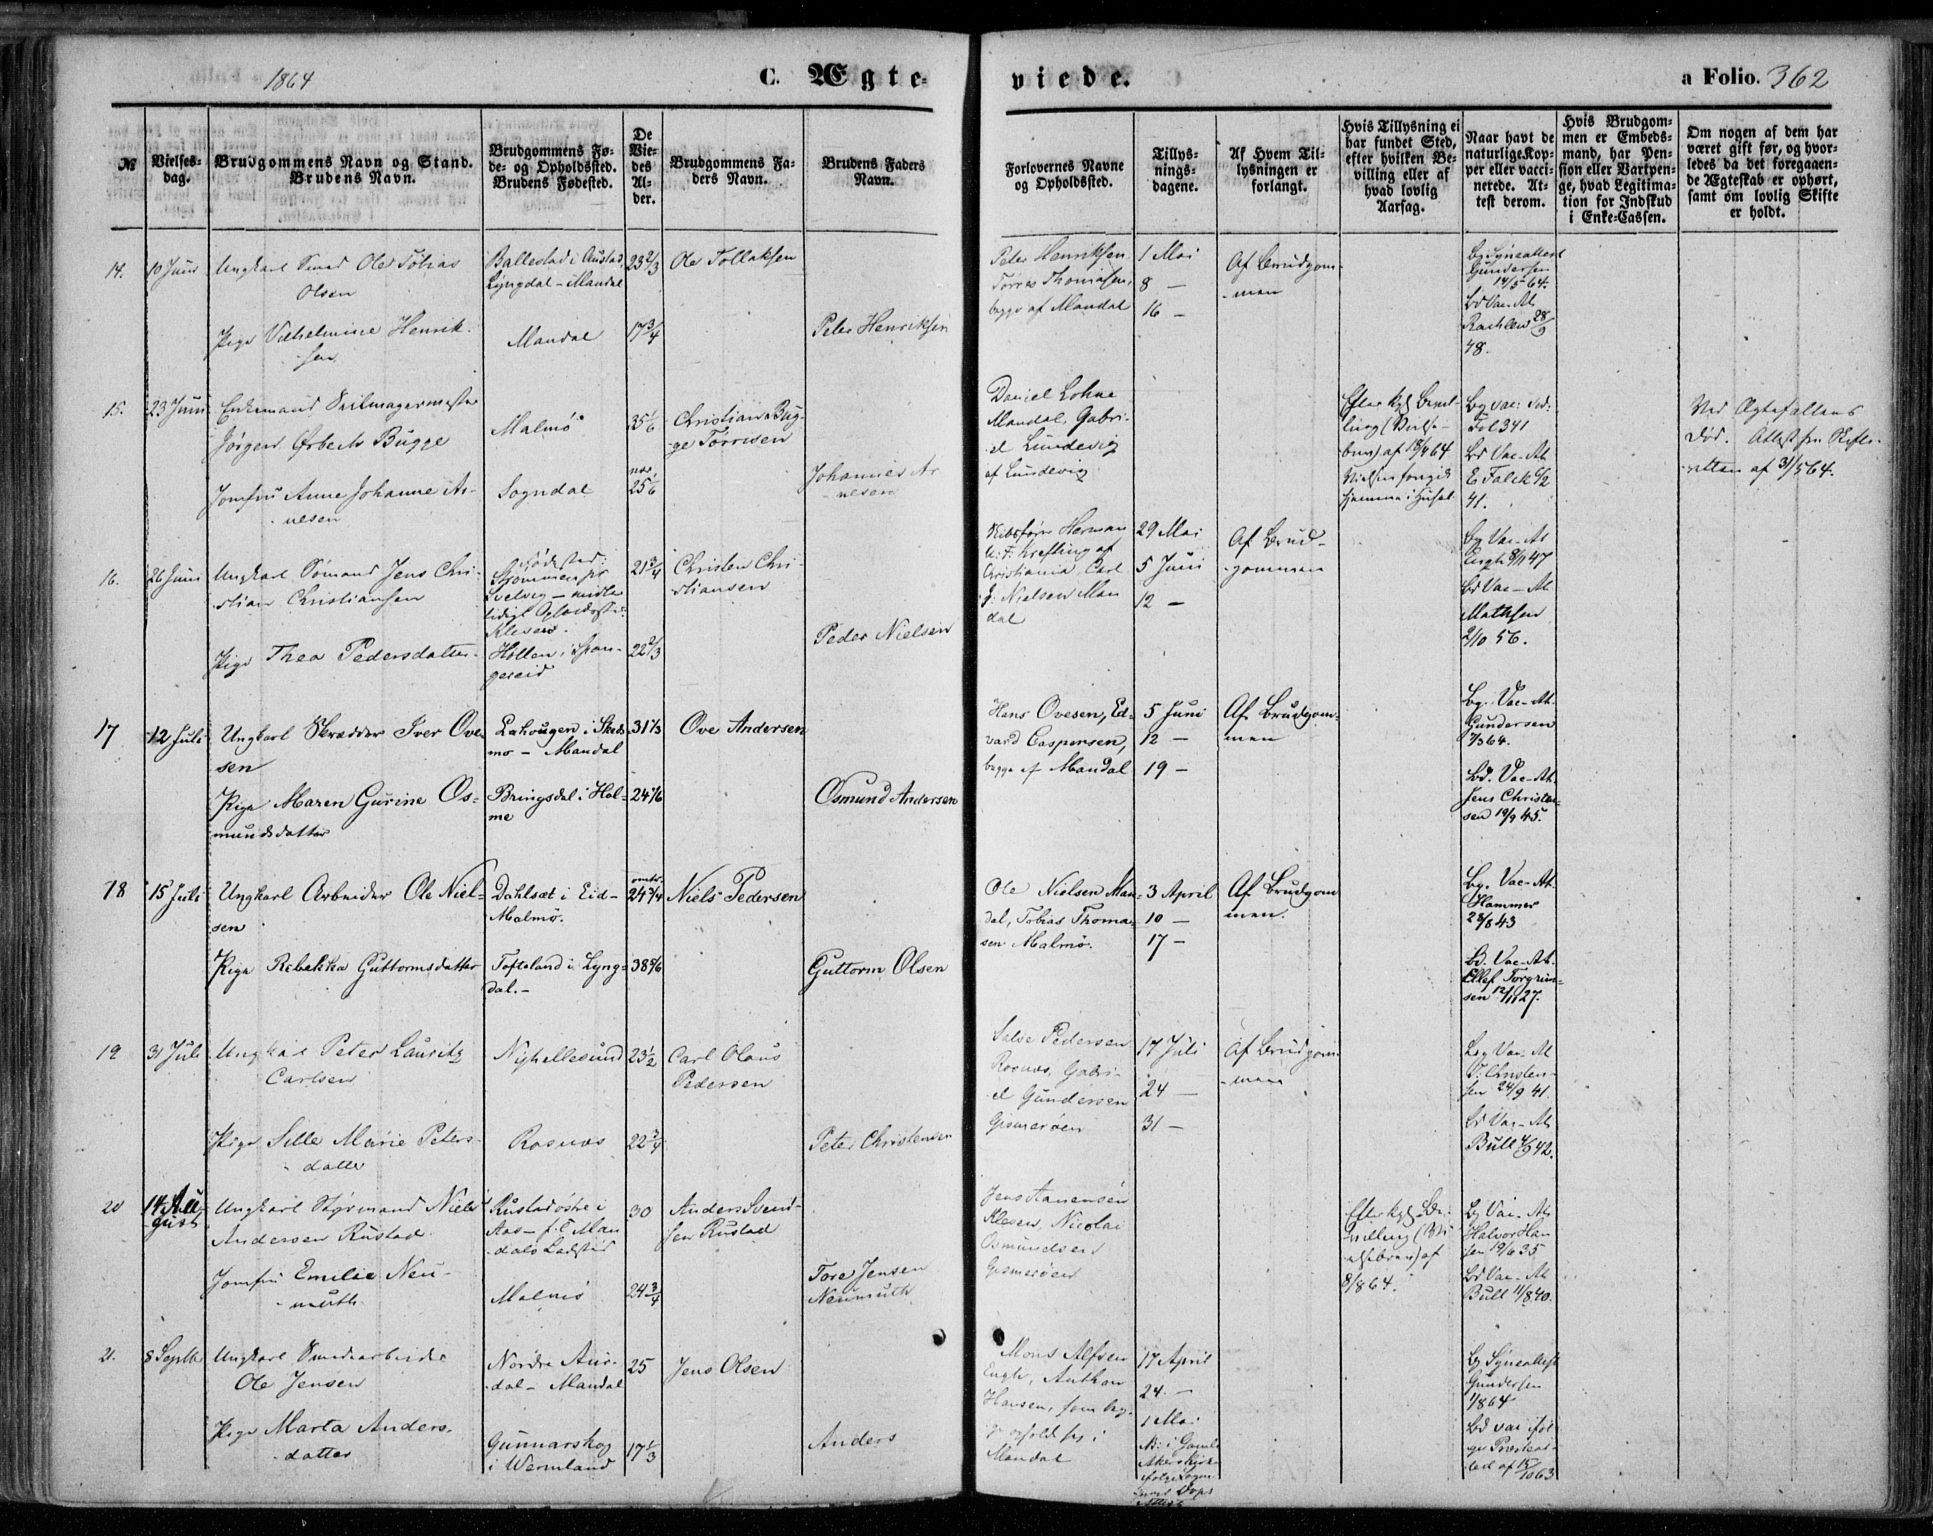 1864
C. Ægte-
viede.
a Folio. 362
№
Vielses-
dag.
Brudgommens Navn og Stand.
Brudens Navn.
Brudgommens Fø-
de- og Opholdssted.
Brudens Fødested.
De
Vie-
des
Al-
der.
Brudgommens Fa-
ders Navn.
Brudens Faders
Navn.
Forlovernes Navne
og Opholdssted.
Tillys-
nings-
dagene.
Af Hvem Til-
lysningen er
forlangt.
Hvis Tillysning ei
har fundet Sted,
efter hvilken Be-
villing eller af
hvad lovlig
Aarsag.
Naar havt de
naturlige Kop-
per eller vacci-
nerede. At-
test derom.
Hvis Brudgom-
men er Embeds-
mand, har Pen-
sion eller Vartpen-
ge, hvad Legitima-
tion for Indskud
i Enke-Cassen.
Om nogen af dem har
været gift før, og hvor-
ledes da det foregaaen-
de Ægteskab er ophørt,
samt om lovlig Skifte
er holdt.
14.
10 Juni
Ungkarl Smed Ole Tobias
Olsen
Pige Vilhelmine Henrik-
sen
Ballestad i Austad
Lyngdal - Mandal
Mandal
23 2/3
17 3/4
Ole Tollaksen
Peter Henriksen
Peter Henriksen
Tørres Thomassen,
begge af Mandal
1 Mai
8 —
16 —
Af Brudgom-
men
Gundersen
14/5 64.
Bd Vac-At.
48.
15.
23 Juni
Enkemand Seilmagermester
Jørgen Ørbeck Bugge
Jomfru Anne Johanne Ar-
nesen
Malmø
Sogndal
35 1/6
25 1/6
Christian Bug-
ge Torrisen
Johannes Ar-
nesen
Daniel Lohne
Mandal, Gabri-
el Lundevig
af Lundevig
Efter kgl Bevil-
ling
hjemme i Huset
Fol 341
Bd Vac-At.
E Falck 6/2
41.
Ved Ægtefællens
Død. Attest fra Skifte-
retten af 31/5 64.
16.
26 Juni
Ungkarl Sømand Jens Chri-
stian Christiansen
Pige Thea Pedersdatter
Fødested:
Svelvig
Kleven.
Hollen i Span-
gereid
21 3/4
22 2/3
Christen Chri-
stiansen
Peder Nielsen
Skibsfører Herman
Krefting af
Christiania, Carl
J. Nielsen Man-
dal
29 Mai
5 Juni
12 —
Af Brud-
gommen
Bg Vac-At
Bd Vac-At
Mathsen
2/10 56.
17
12 Juli
Ungkarl Skrædder Iver Ove-
sen
Pige Maren Gurine Os-
mundsdatter
Lahougen i Skeds-
mo - Mandal
Bringsdal i Hol-
me
31 1/3
24 1/6
Ove Andersen
Osmund Andersen
Hans Ovesen, Ed-
vard Caspersen,
begge af Mandal
5 Juni
12 —
19 —
Af Brudgom-
men
Bg. Vac-At.
Gundersen
7/3 64.
Bd. Vac-At.
Jens Christen-
sen 19/9 45.
18
15 Juli
Ungkarl Arbeider Ole Niel-
sen
Pige Rebekka Guttormsdatter
Dahlsæt i Eid-
Malmø.
Tofteland i Lyng-
dal.-
omtr.
24 3/4
38 5/6
Niels Pedersen
Guttorm Olsen
Ole Nielsen Man-
dal, Tobias Thoma-
sen Malmø.
3 April
10 —
17 —
Af Brudgom
men.
Bg. Vac-At.
Hammer
28/8 43
Bd. Vac-At.
Ellef Torgrim-
sen 12/11 27.
19
31 Juli
Ungkarl Peter Lauritz
Carlsen
Pige Sille Marie Peters-
datter
Ny Hellesund
Rosnæs
23 1/2
22 3/4
Carl Olaus
Pedersen
Peter Christensen
Salve Pedersen
Rosnæs, Gabri-
el Gundersen
Gismerøen
17 Juli
24 —
31 —
Af Brudgom
men
Bg Vac-At
Christen-
sen 24/9 41.
Bd Vac-At
Bull 4/9 42.
20
14 Au-
gust
Ungkarl Styrmand Niels
Andersen Rustad
Jomfru Emilie Neu-
muth
Rustadøstre i
Aas - f. T. Man-
dals Ladested
Malmø
30
24 3/4
Anders Svend-
sen Rustad
Tore Jensen
Neumuth
Jens Aanensen
Kleven, Nicolai
Osmundsen
Gismerøen
Efter kgl Be-
villing (Vi-
elsebrev) af
8/8 64.
Bg Vac-At.
Halvor Han-
sen 19/6 35
Bd Vac-At.
Bull 11/8 40.
21.
8 Septbr
Ungkarl Smedearbeider
Ole Jensen
Pige Marta Anders-
datter
Nordre Aur-
dal - Mandal
Gunnarskog
i Wermland
25
17 1/3
Jens Olsen
Anders
Mons Alfsen
Engli, Anthon
Hansen, som beg-
ge opholde sig i
Mandal
17 April
24. —
1 Mai
Gundersen
1/8 64
Bd vac. iføl-
ge Præsteat-
test af 15/10 63